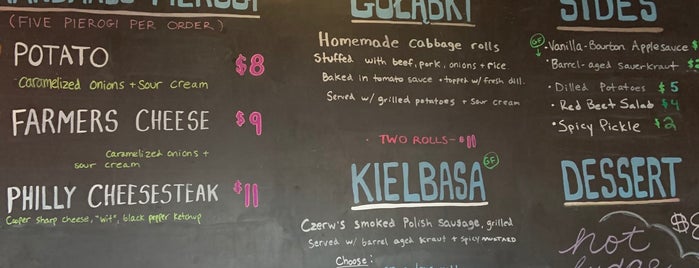 HANDMADE PIEROGI
(FIVE PIEROGI PER ORDER)
POTATO $8
Caramelized onions + Sour cream
FARMERS CHEESE $9
Caramelized onions +
sour cream
PHILLY CHEESESTEAK $11
Cooper sharp cheese, "wit", black pepper ketchup
GOŁĄBKI
Homemade cabbage rolls
Stuffed with beef, pork, onions + rice
Baked in tomato sauce + topped w/ fresh dill.
Served w/ grilled potatoes + Sour cream
• TWO ROLLS- $11
KIELBASA GF
Czerw's smoked Polish sausage, grilled
Served w/ barrel aged kraut + Spicy MUSTARD
Choose:
SIDES
GF
• Vanilla-Bourbon Applesauce
• Barrel-aged Sauerkraut
• Dilled Potatoes $5
• Red Beet Salad $4
• Spicy Pickle $2
DESSERT
hot